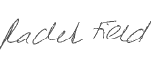 Rachel Field